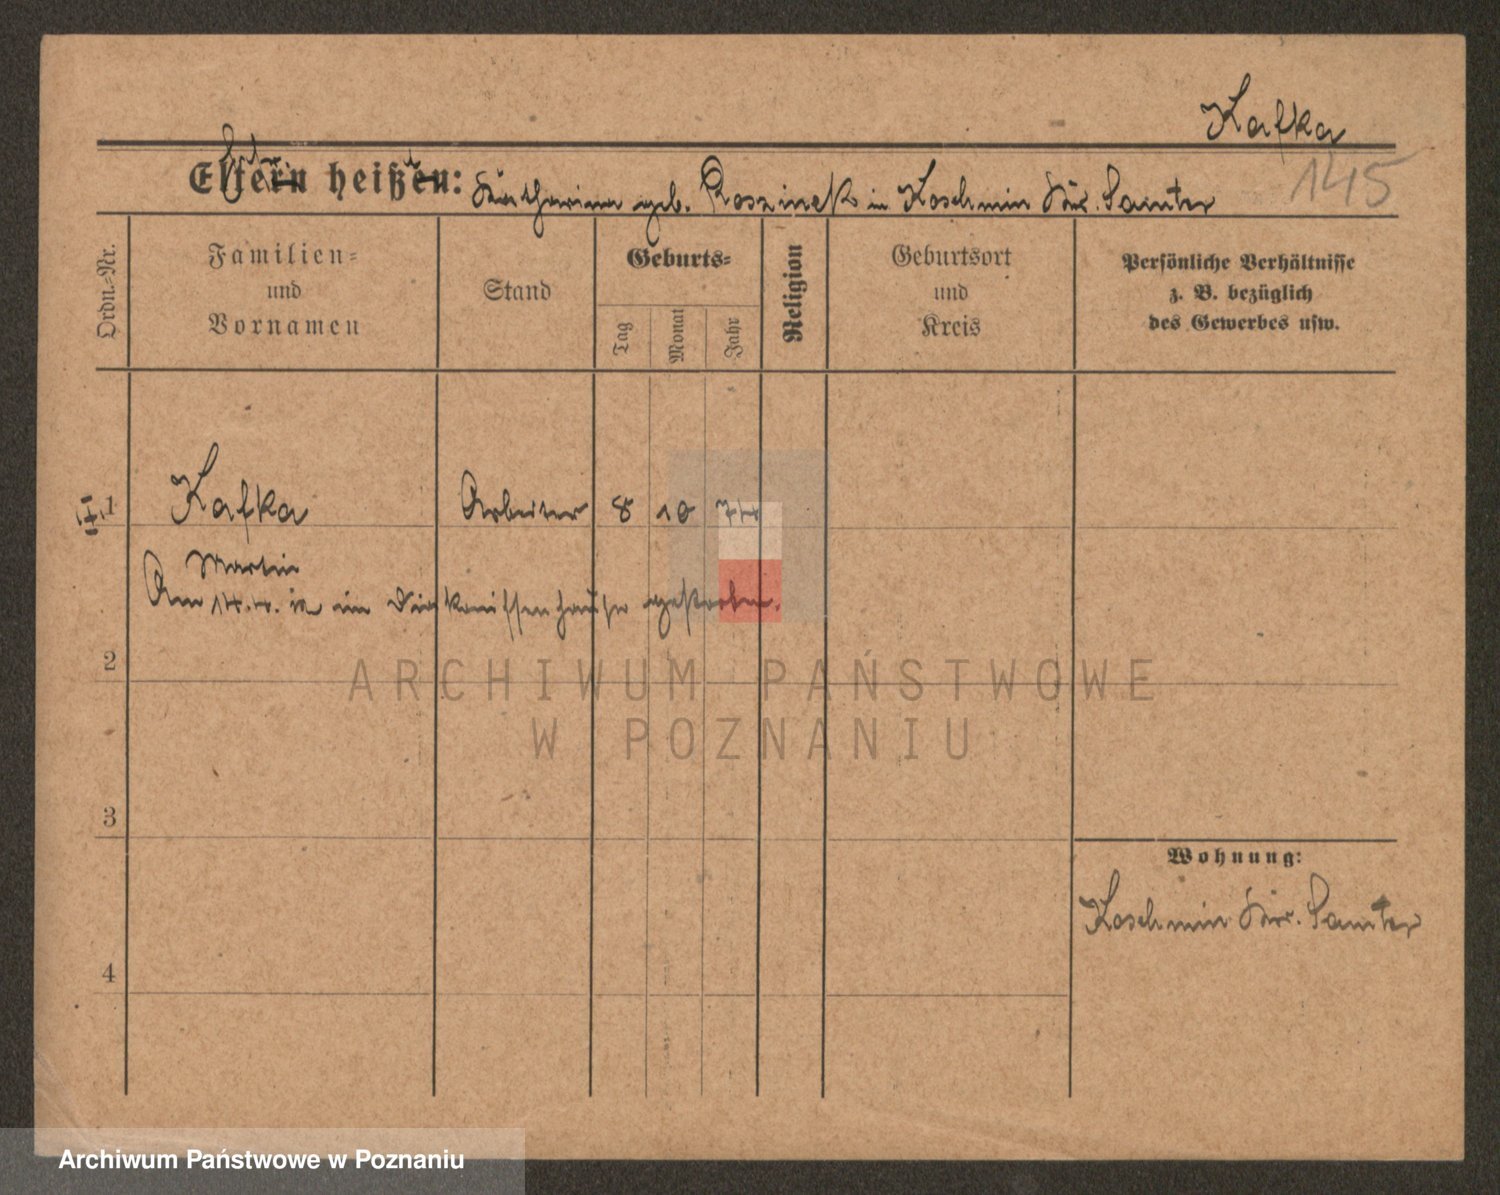 Kafka
145
Eltern heißen: Katharina geb. Roszinek in Koschmin Kr. Samter
Ordn.-Nr.
Familien-
und
Vornamen
Stand
Geburts-
Tag
Monat
Jahr
Religion
Geburtsort
und
Kreis
Persönliche Verhältnisse
z. B. bezüglich
des Gewerbes usw.
1
Kafka Arbeiter 8 10 74
Martin
Am 14.4. in Diakonissenhause gestorben.
2
ARCHIWUM PAŃSTWOWE
W POZNANIU
3
Wohnung:
Koschmin Kr. Samter
4
Archiwum Państwowe w Poznaniu